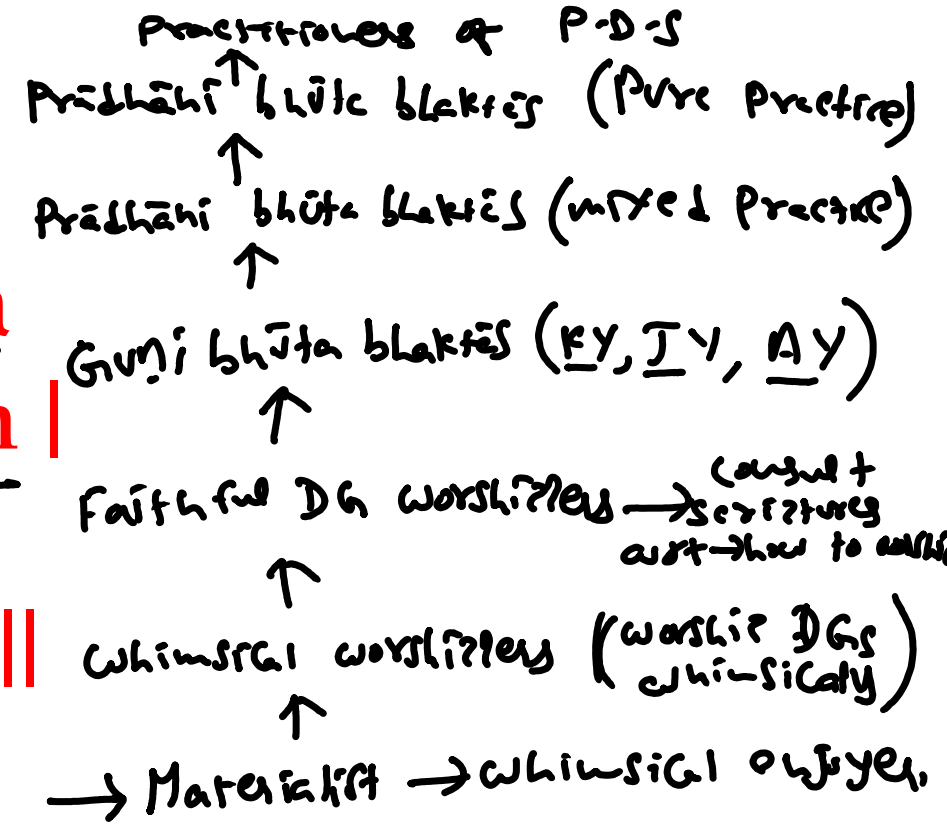 Practitioners of P-D-S
Prādhāni bhūta bhaktās (Pure Practice)
Prādhāni bhūta bhaktās (mixed Practice)
Guṇi bhūta bhaktās (KY, JY, AY)
Faithful DG worshippers → consult
scriptures
wrt → how to worshi
||
whimsical worshippers (worship DGs
whimsicaly)
→ Materialist → whimsical enjoyer,